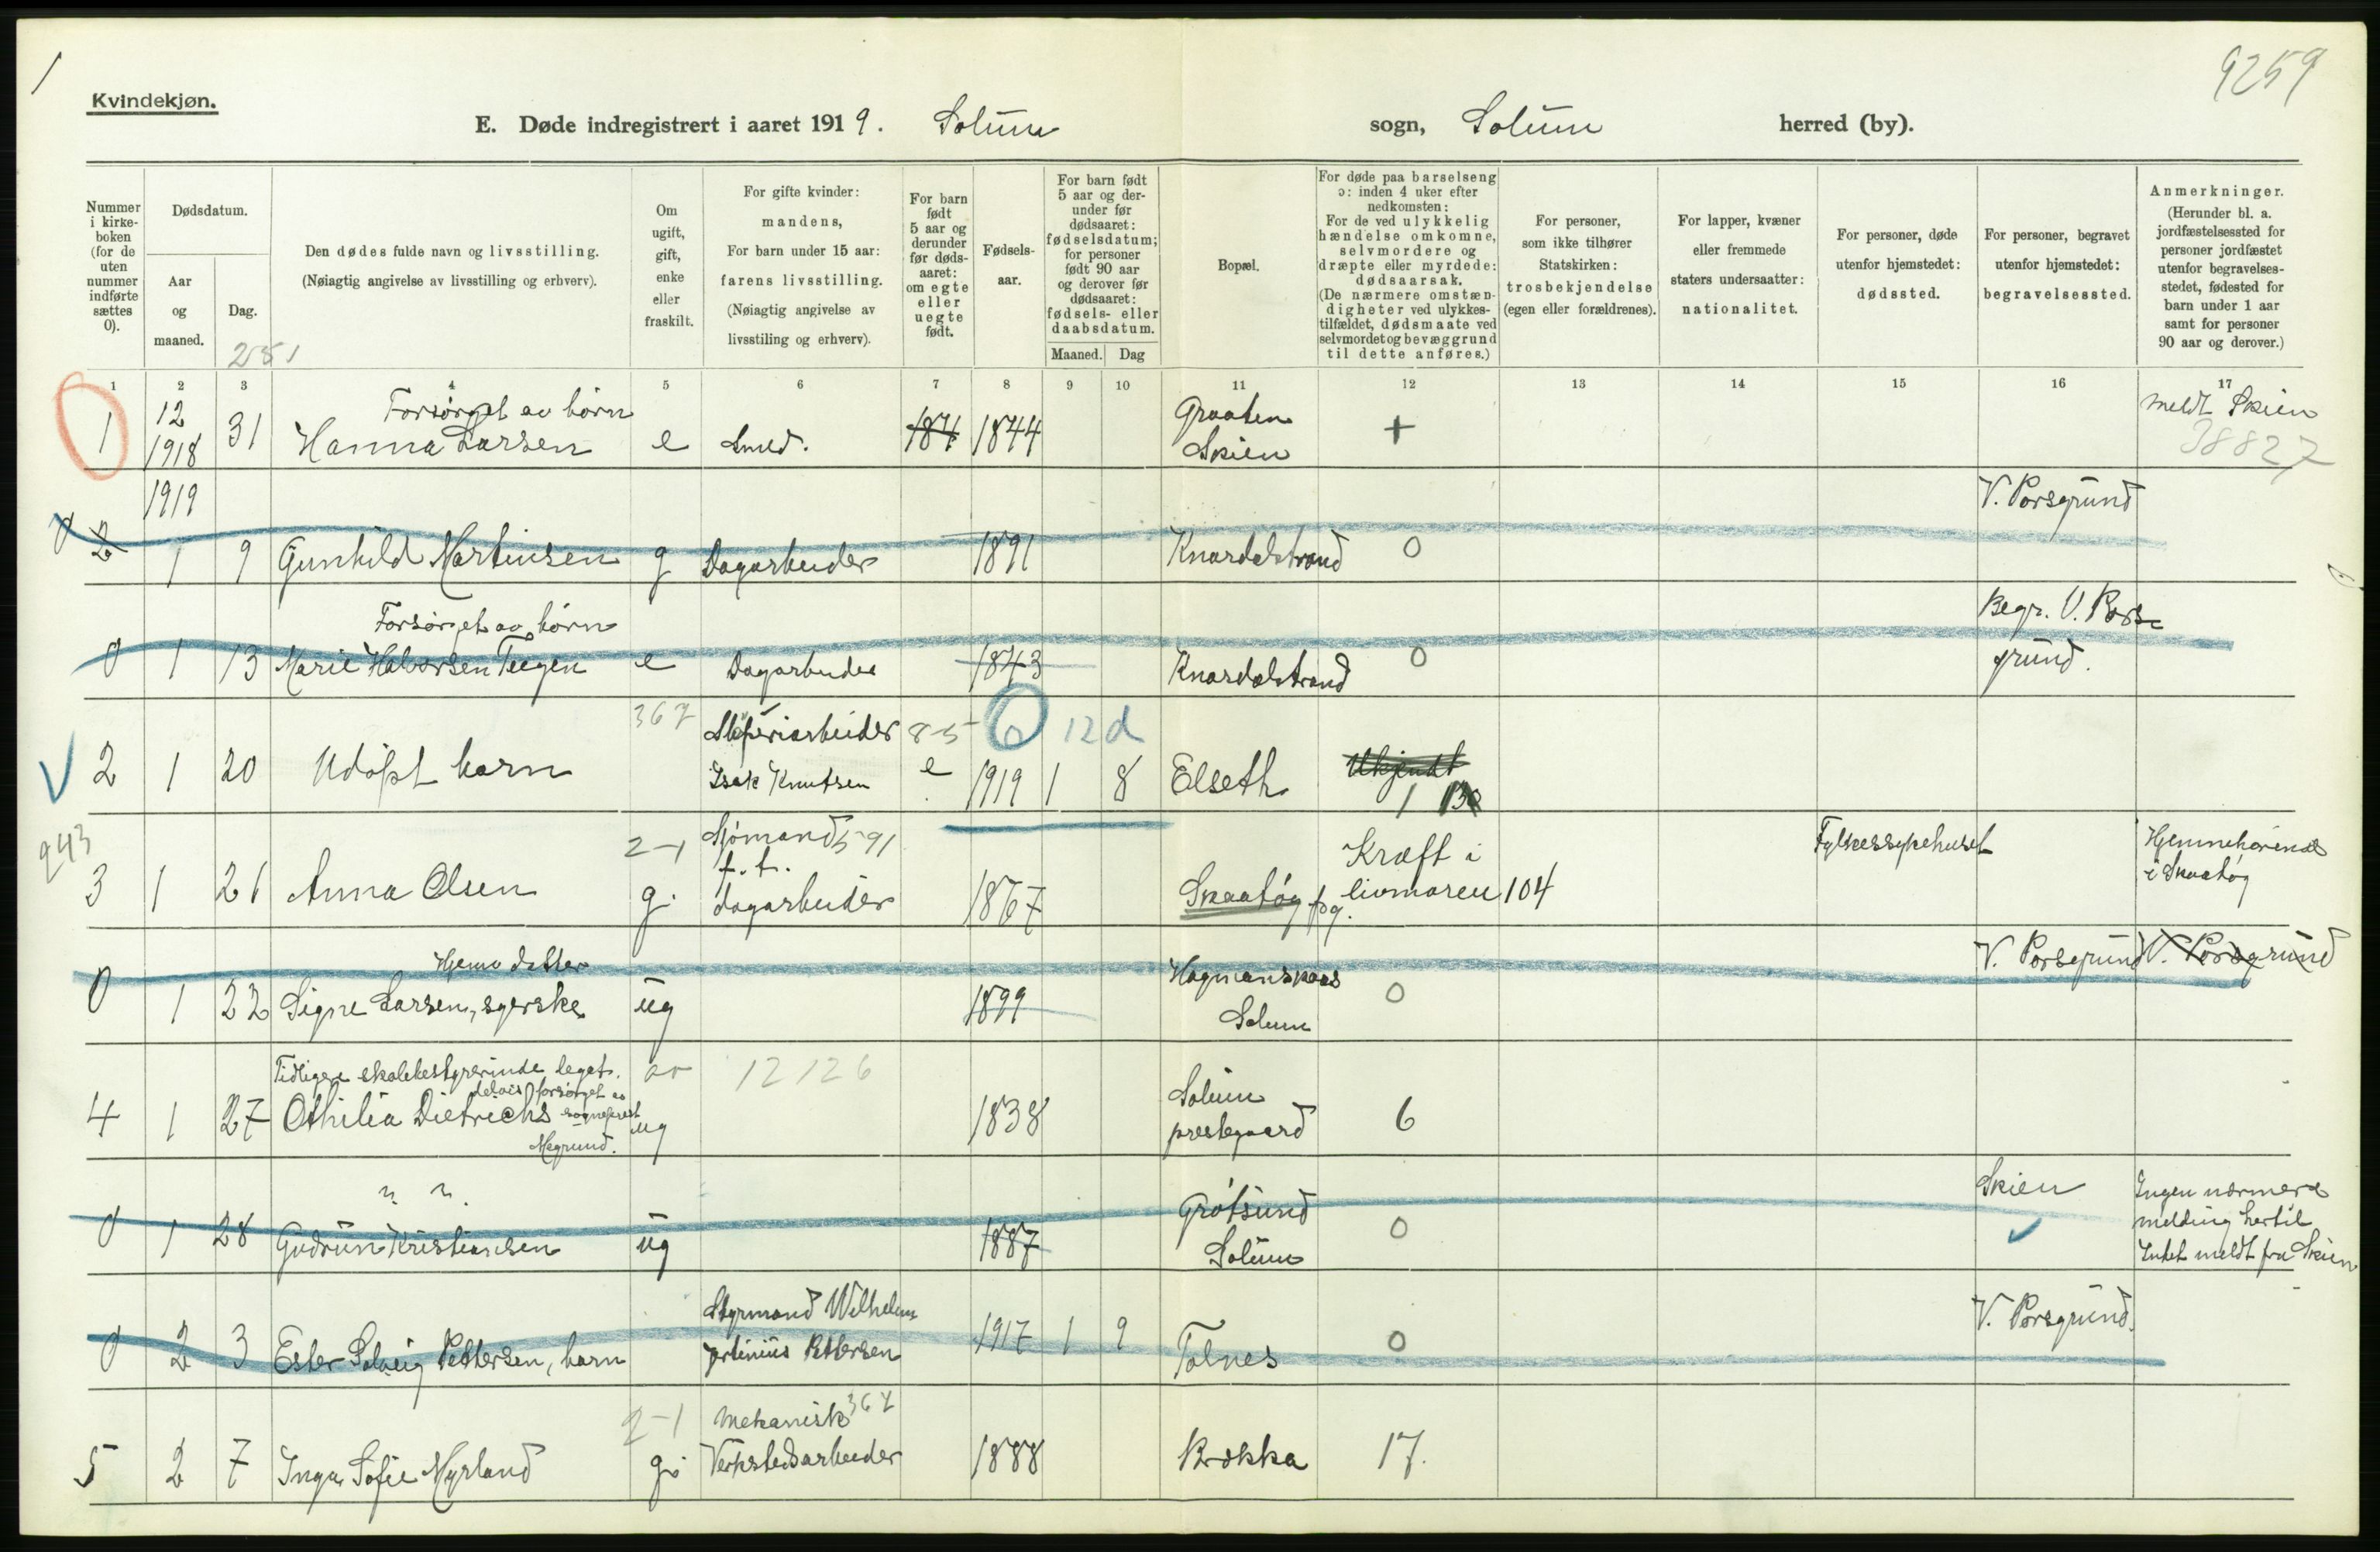 1
9259
Kvindekjøn.
E. Døde indregistrert i aaret 1919. Solum sogn, Solum herred (by).
Nummer i kirke-boken (for de uten nummer indførte sættes 0).
Dødsdatum.
Aar og maaned.
Dag.
251
Den dødes fulde navn og livsstilling.
(Nøiagtig angivelse av livsstilling og erhverv).
Om ugift, gift, enke eller fraskilt.
For gifte kvinder: mandens,
For barn under 15 aar: farens livsstilling.
(Nøiagtig angivelse av livsstiling og erhverv).
For barn født 5 aar og derunder før døds-aaret: om egte eller uegte født.
Fødsels-aar.
For barn født 5 aar og der-under før dødsaaret: fødselsdatum; for personer født 90 aar og derover før dødsaaret: fødsels- eller daabsdatum.
Maaned. Dag
Bopæl.
For døde paa barselseng ɔ: inden 4 uker efter nedkomsten:
For de ved ulykkelig hændelse omkomne, selvmordere og dræpte eller myrdede: dødsaarsak.
(De nærmere omstæn-digheter ved ulykkes-tilfældet, dødsmaate ved selvmordet og bevæggrund til dette anføres.)
For personer, som ikke tilhører Statskirken: trosbekjendelse (egen eller forældrenes).
For lapper, kvæner eller fremmede staters undersaatter: nationalitet.
For personer, døde utenfor hjemstedet: dødssted.
For personer, begravet utenfor hjemstedet: begravelsessted.
Anmerkninger.
(Herunder bl. a. jordfæstelsessted for personer jordfæstet utenfor begravelses-stedet, fødested for barn under 1 aar samt for personer 90 aar og derover.)
1 2 3 4 5 6 7 8 9 10 11 12 13 14 15 16 17
12 Forsørget av børn Graaten meldt Skien
1 1918 31 Hanna Larsen e Smed. 187 1844 Skien + 38827
1919 V. Porsgrund
0 2 1 9 Gunhild Martinsen g Dagarbeider 1891 Knardalstrand 0
Forsørget av børn Begr. V. Pors-
0 1 13 Marie Halvorsen Teigen e Dagarbeider 1843 Knardalstrand 0 grund.
367 Sliperiarbeider 8-5 6 12 d
2 1 20 Udøpt barn Isak Knutsen e 1919 1 8 Elseth Ukjendt
1 130
943 2-1 Sjømand 591 Kræft i Fylkessykehuset Hjemmehørende
3 1 21 Anna Olsen g. f. t. dagarbeider 1867 Skaatøy pg. livmoren 104 i Skaatøy
Hjemv datter Hagmanskaas V. Porsgrund V. Porsgrund
0 1 22 Signe Larsen, syerske ug 1899 Solum 0
Tidligere skolebestyrerinde, legat. 12126 Solum
delvis forsørget av
4 1 27 Othilia Dietrichs sogneprest ug 1838 prestegaard 6
Grøtsund Skien Ingen nærmere
0 1 28 Gudrun Kristiansen ug 1887 Solum 0 melding hertil
Intet meldt fra Skien
Styrmand Wilhelm V. Porsgrund.
0 2 3 Ester Solveig Pettersen, barn Pettersen 1917 1 9 Tolnes 0
2-1 Mekanisk 367
5 2 7 Inga Sofie Myrland g. Verkstedsarbeider 1888 Brekka 17.